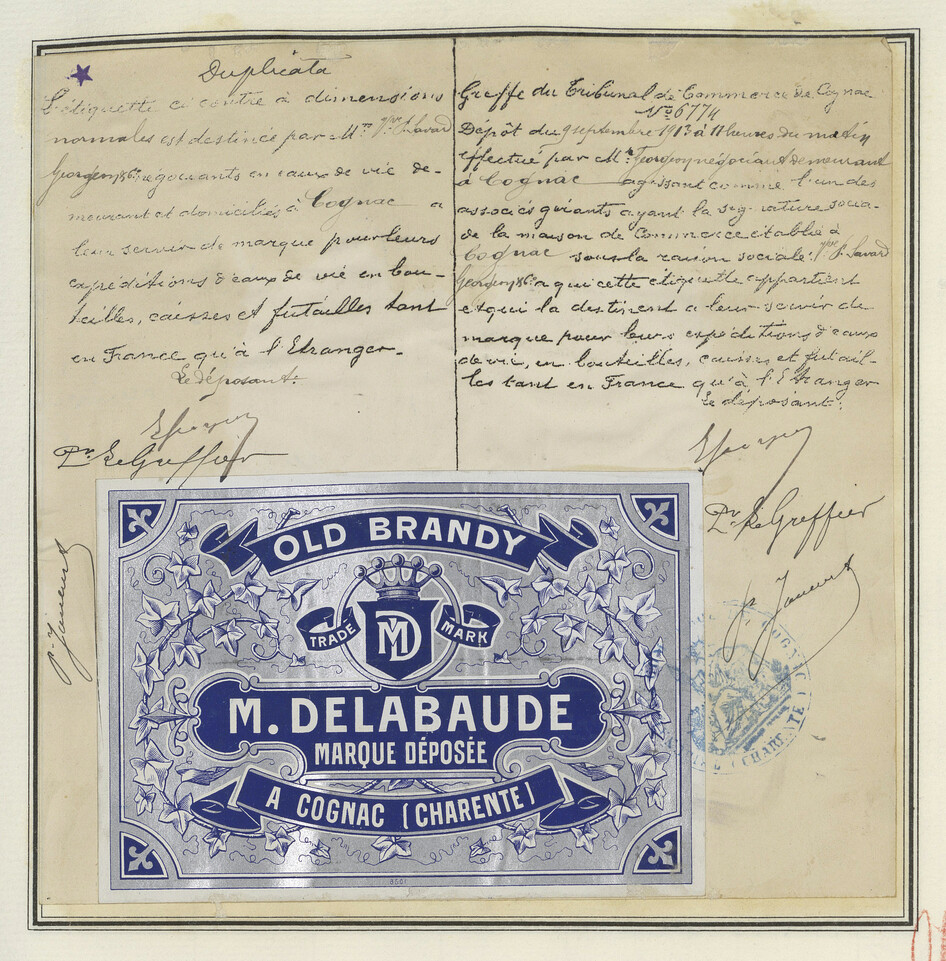 Duplicata
L'étiquette ci contre à dimensions
normales est destinée par M.rs Savard
négociants en eaux de vie de-
meurant et domiciliés à Cognac a
leur servir de marque pour leurs
expéditions d'eaux de vie en bou-
teilles, caisses et futailles tant
en France qu'à l'Etranger.
Le déposant:
Pr Le Greffier
Greffe du Tribunal de Commerce de Cognac
No 6774
Dépôt du 9 septembre 191 à 11 heures du matin
effectué par M. négociant demeurant
à Cognac agissant comme l'un des
associés gérants ayant la signature socia-
le de la maison de Commerce établie à
Cognac sous la raison sociale: Savard
a qui cette étiquette appartient
et qui la destinent a leur servir de
marque pour leurs expéditions d'eaux
de vie, en bouteilles, caisses et futail-
les tant en France qu'à l'Etranger
Le déposant:
Pr Le Greffier
OLD BRANDY
TRADE MARK
MD
M. DELABAUDE
MARQUE DÉPOSÉE
A COGNAC (CHARENTE)
COGNAC
(CHARENTE)